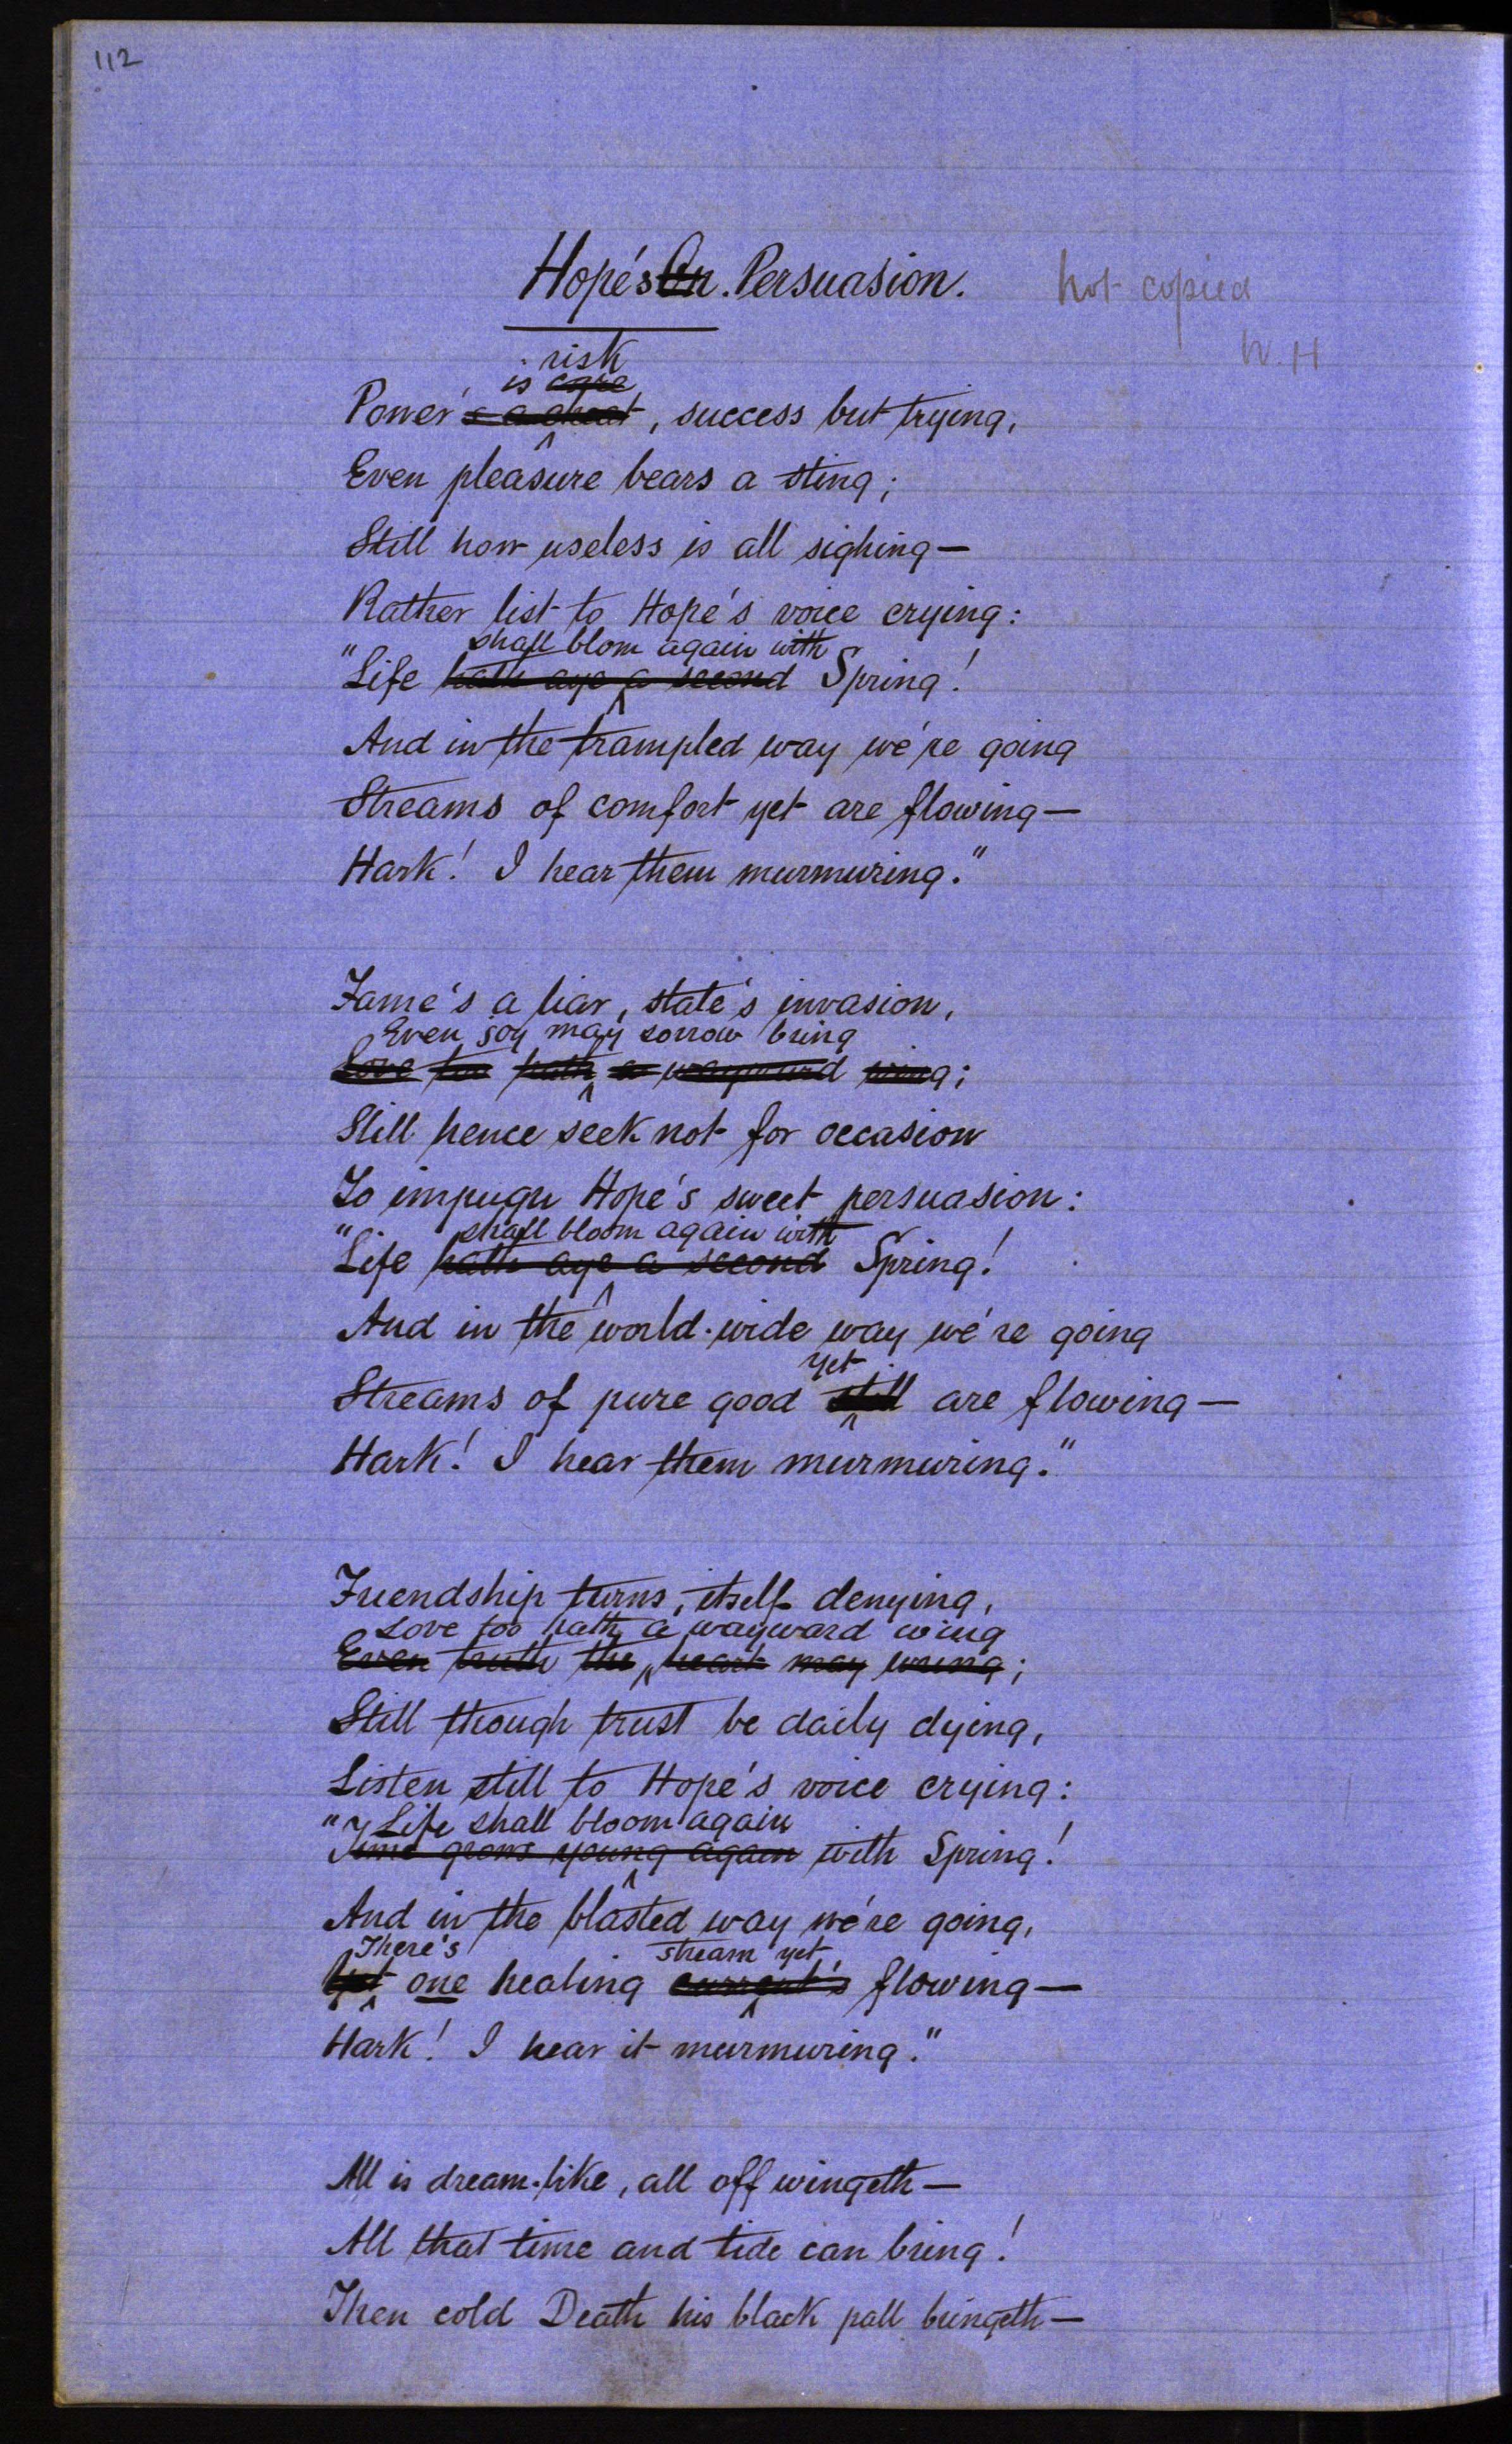 112
Hope's On. Persuasion.
not copied
W. H
risk
is care
Power's a cheat, success but trying,
Even pleasure bears a sting;
Still how useless is all sighing—
Rather list to Hope's voice crying:
shall blom again with
"Life hath aye a second Spring!
And in the trampled way we're going
Streams of comfort yet are flowing—
Hark! I hear them murmuring."
Fame's a liar, state's invasion,
Even joy may sorrow bring
Love too hath a wayward wing;
Still hence seek not for occasion
To impugn Hope's sweet persuasion:
shall bloom again with
"Life hath aye a second Spring!
And in the world-wide way we're going
yet
Streams of pure good still are flowing—
Hark! I hear them murmuring."
Friendship turns, itself denying,
Love too hath a wayward wing
Even truth the heart may wring;
Still though trust be daily dying,
Listen still to Hope's voice crying:
Life shall bloom again
"Time grows young again with Spring!
And in the blasted way we're going,
There's stream yet
Yet one healing current's flowing—
Hark! I hear it murmuring."
All is dream-like, all off wingeth—
All that time and tide can bring!
Then cold Death his black pall bringeth—